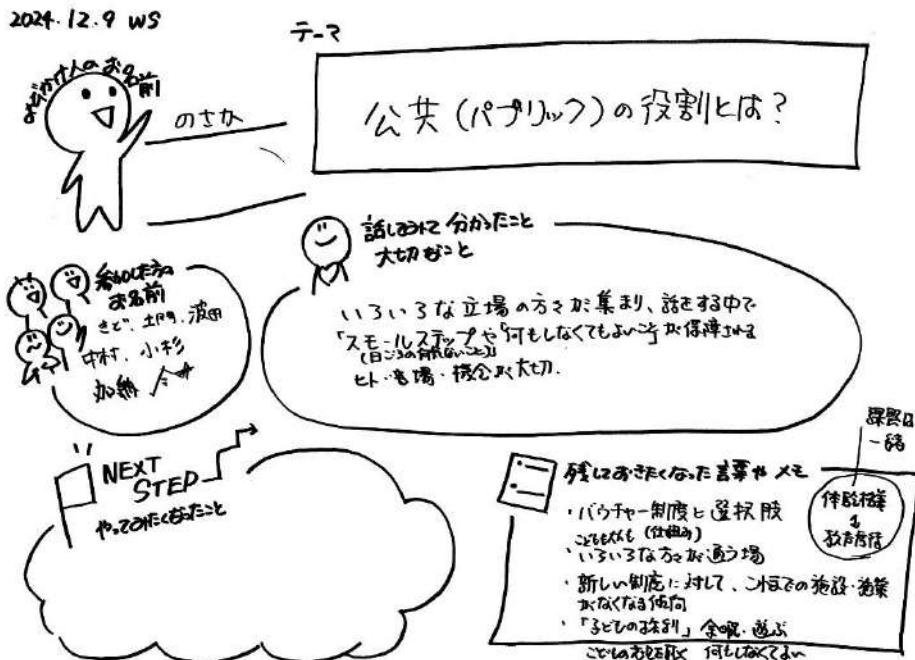 2024.12.9 WS
テーマ
公共(パブリック)の役割とは?
お名前
のさか
話してみて分かったこと
大切なこと
いろいろな立場の方々が集まり、話をする中で
「スモールステップや「何もしなくてもよいこと」が保障される
ヒト・場・機会が大切.
参加した方の
お名前
さど、土門、波田
中村、小杉
加納
NEXT
STEP
やってみたくなったこと
課題は
一緒
残しておきたくなった言葉やメモ
・バウチャー制度と選択肢
こどもも大人も(仕組み)
・いろいろな方々が通う場
・新しい制度に対して、これまでの施設・施策
がなくなる傾向
・「子どもの権利」余暇・遊ぶ
こどもの 何もしなくてよい
体験格差